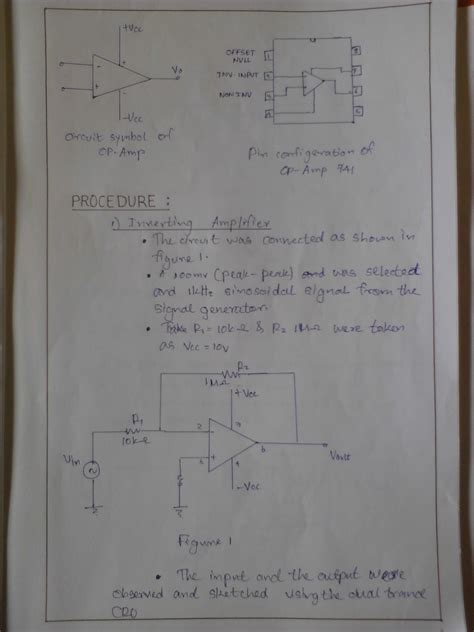 +Vcc
Vo
-Vcc
Circuit symbol of
OP-Amp
OFFSET
NULL
INV-INPUT
NON INV
1
2
3
4
8
7
6
5
Pin configeration of
OP-Amp 741
PROCEDURE :
1) Inverting Amplifier
• The circuit was connected as shown in
figure 1.
• A 100mv (peak-peak) and was selected
and 1kHz sinosoidal signal from the
signal generator.
• R1 = 10kΩ & R2 1MΩ were taken
as Vcc = 10v
R2
1MΩ
+Vcc
R1
10kΩ
2
7
3
4
6
Vin
Vout
-Vcc
Figure 1
• The input and the output were
observed and sketched using the dual trance
CRO